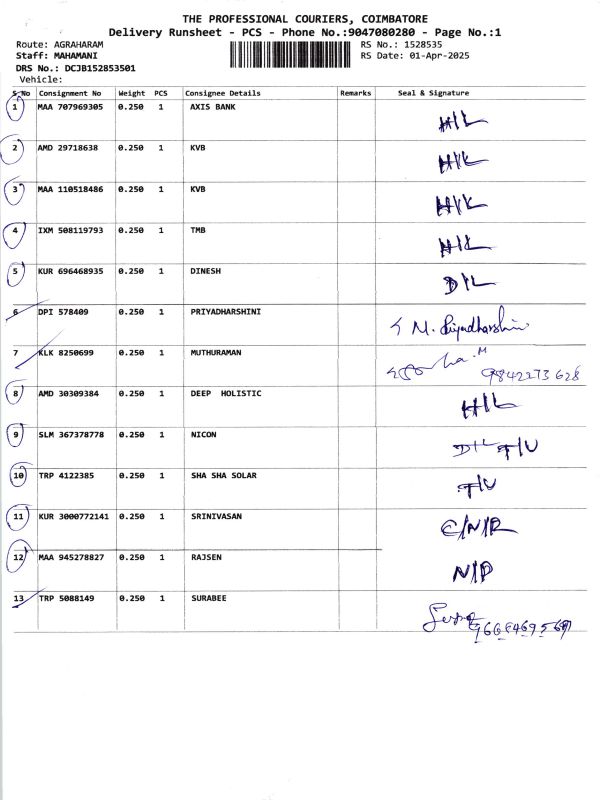 THE PROFESSIONAL COURIERS, COIMBATORE
Delivery Runsheet - PCS - Phone No.:9047080280 - Page No.:1
Route: AGRAHARAM RS No.: 1528535
Staff: MAHAMANI RS Date: 01-Apr-2025
DRS No.: DCJB152853501
Vehicle:
S No Consignment No Weight PCS Consignee Details Remarks Seal & Signature
1 MAA 707969305 0.250 1 AXIS BANK H/L
2 AMD 29718638 0.250 1 KVB
3 MAA 110518486 0.250 1 KVB
4 IXM 508119793 0.250 1 TMB H/L
5 KUR 696468935 0.250 1 DINESH D/L
6 DPI 578409 0.250 1 PRIYADHARSHINI M. Priyadharshini
7 KLK 8250699 0.250 1 MUTHURAMAN
9842273628
8 AMD 30309384 0.250 1 DEEP HOLISTIC H/L
9 SLM 367378778 0.250 1 NICON D/L T/U
10 TRP 4122385 0.250 1 SHA SHA SOLAR T/U
11 KUR 3000772141 0.250 1 SRINIVASAN C/N/R
12 MAA 945278827 0.250 1 RAJSEN N/P
13 TRP 5088149 0.250 1 SURABEE